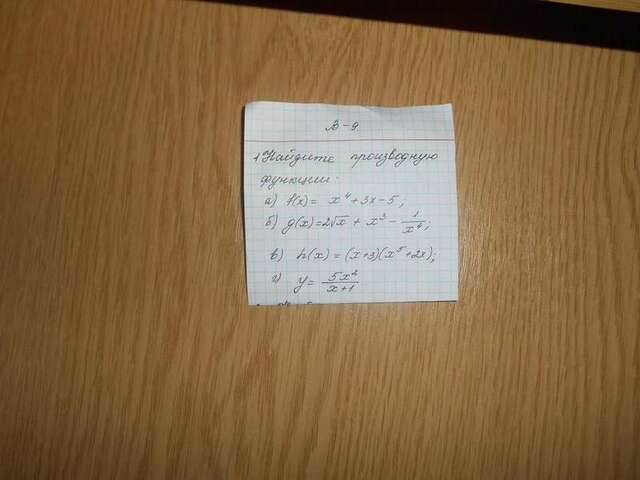 В-9.
1. Найдите производную
функции:
а) f(x) = x⁴ + 3x - 5;
б) g(x) = 2√x + x³ - 1/x⁴;
в) h(x) = (x+3)(x⁵+2x);
г) y = 5x²/x+1